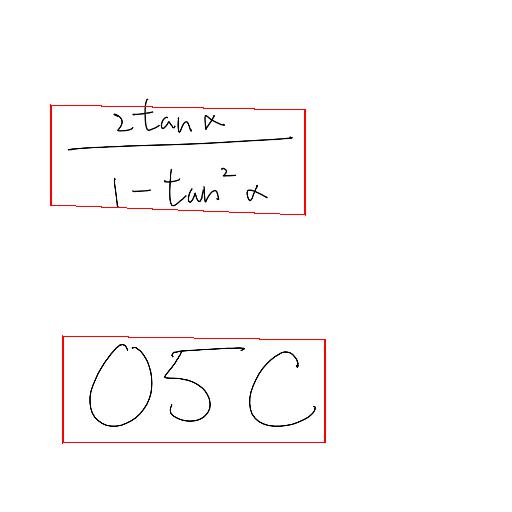 \frac{2\tan\alpha}{1-\tan^2\alpha}
05C